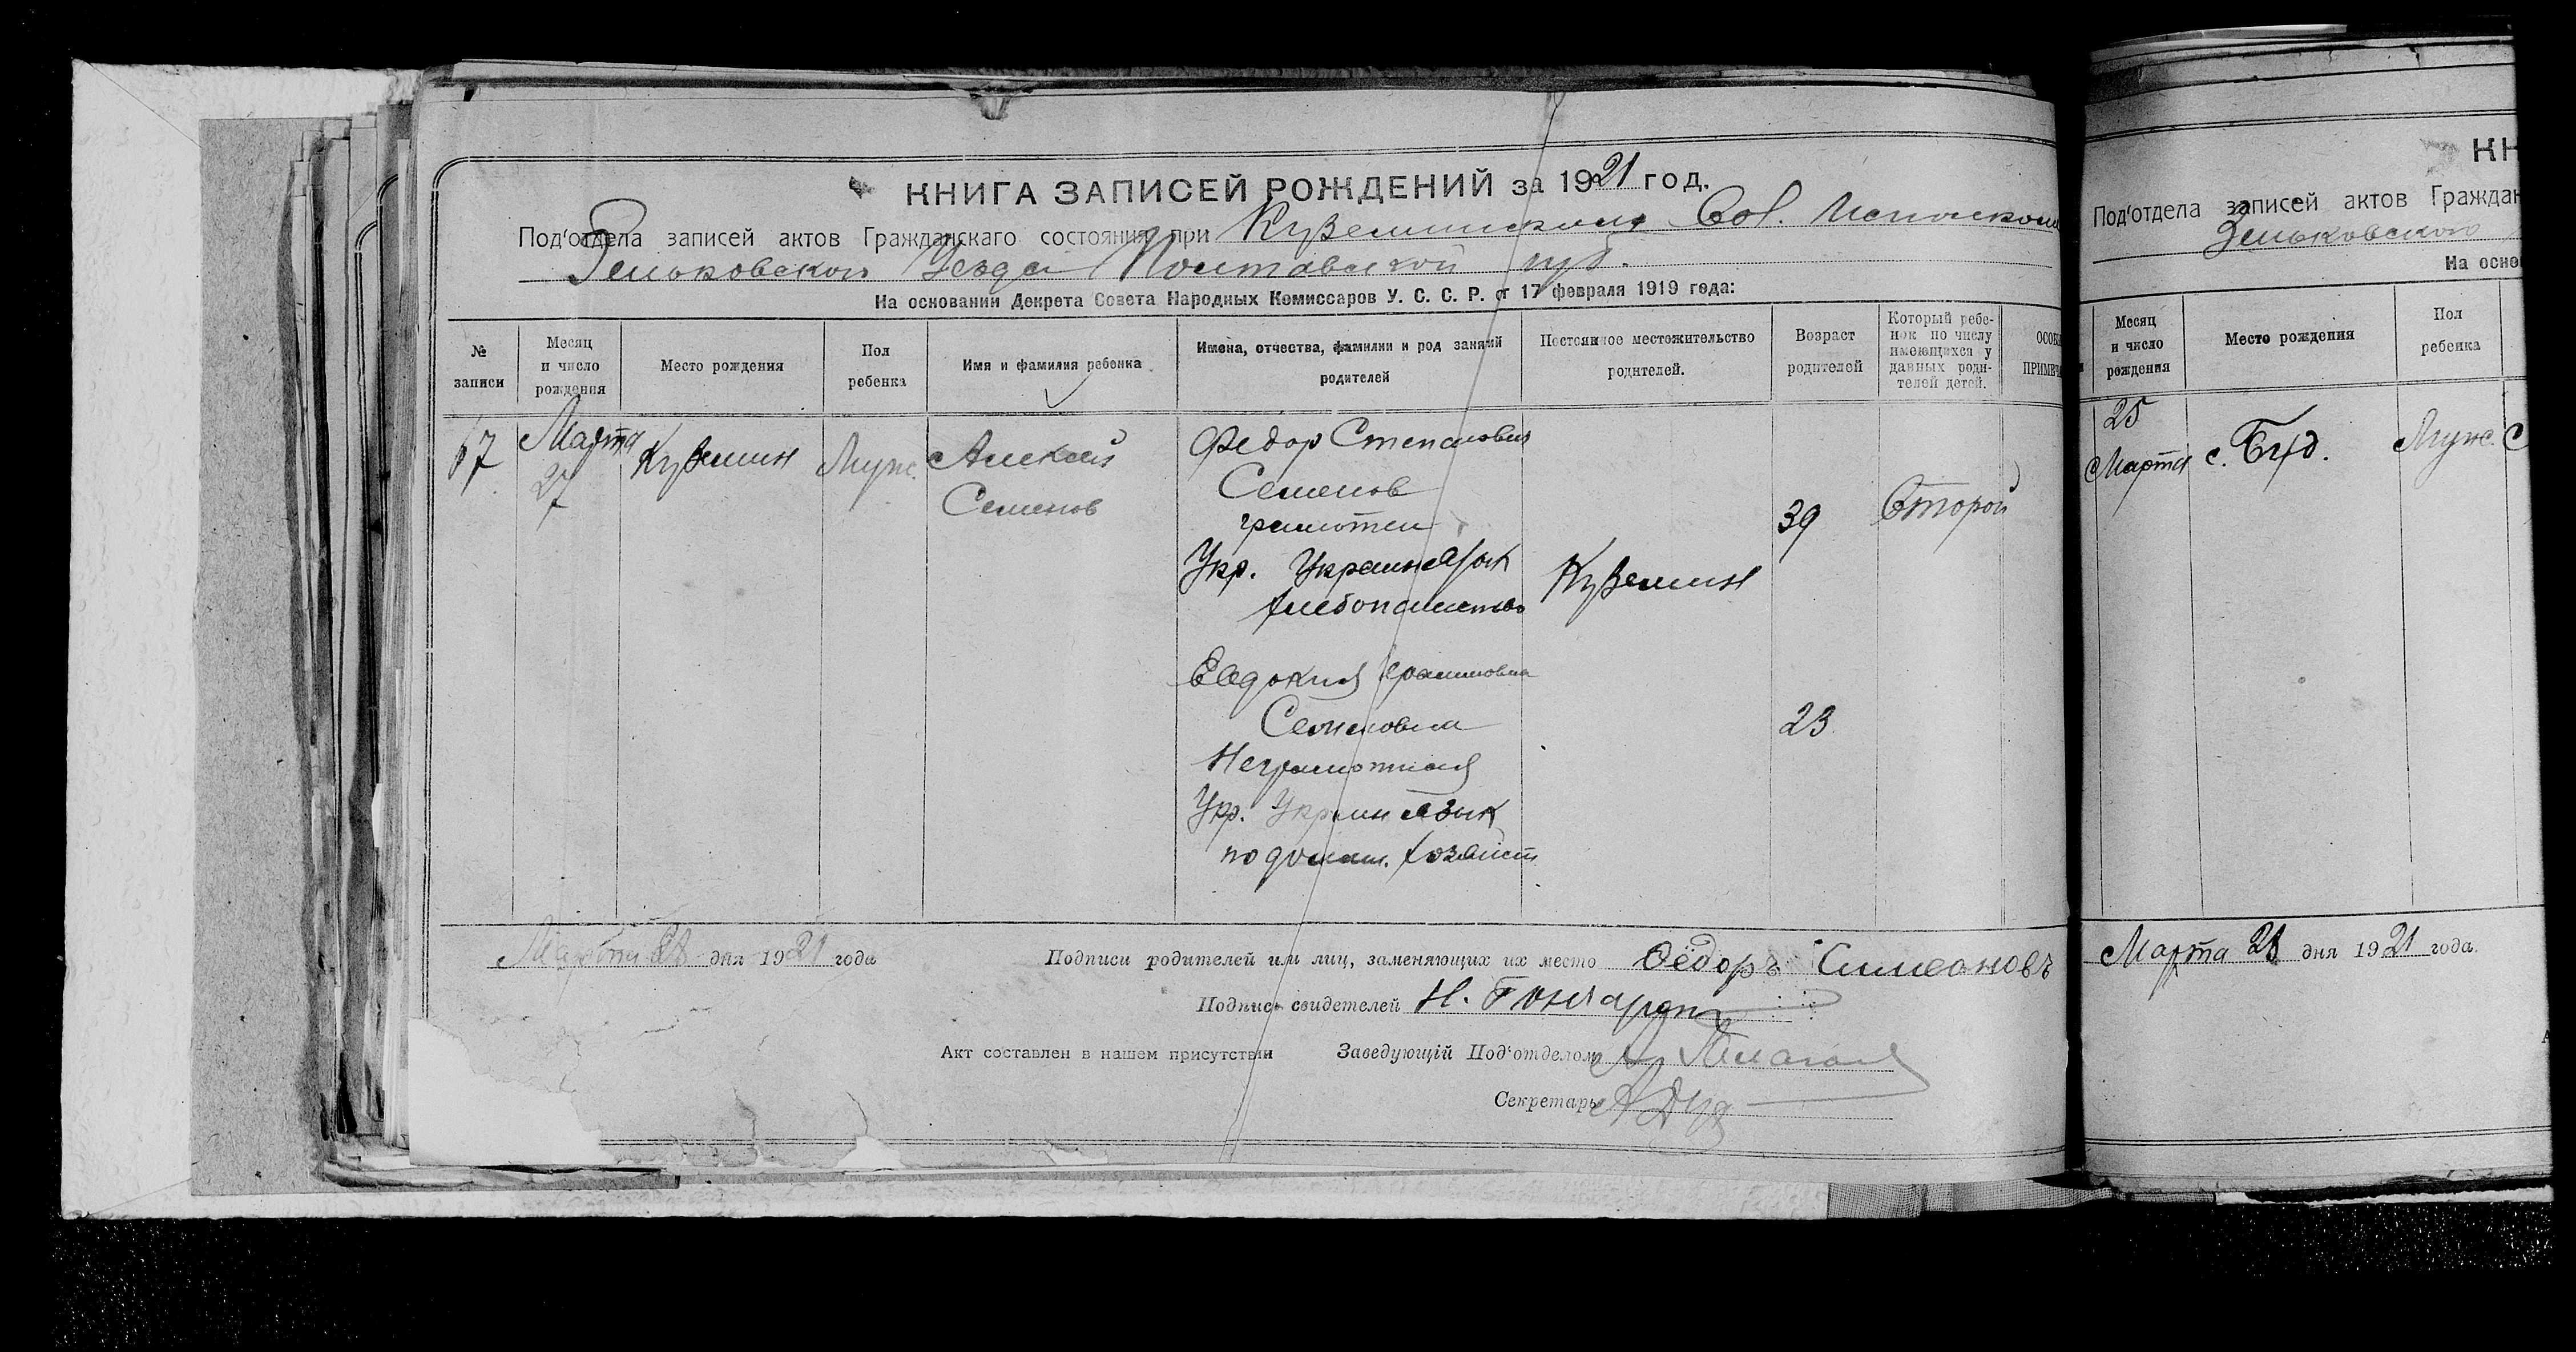 КНИГА ЗАПИСЕЙ РОЖДЕНИЙ за 1921 год.
Под'отдела записей актов Гражданскаго состояния при Куземинском Сов. Исполкоме
Зеньковского Уезда Полтавской губ.
На основании Декрета Совета Народных Комиссаров У. С. С. Р. от 17 февраля 1919 года:
№ записи
Месяц и число рождения
Место рождения
Пол ребенка
Имя и фамилия ребенка
Имена, отчества, фамилии и род занятий родителей
Постоянное местожительство родителей.
Возраст родителей
Который ребенок по числу имеющихся у данных родителей детей.
67
Марта 27
Куземин
Муж.
Алексей
Семенов
Федор Степанович
Семенов
грамотен
Укр. Украин язык
хлебопашество
Куземин
39
Второй
Евдокия
Семенова
Неграмотная
Укр. Украин язык
по домаш. хозяйст
23
Марта 28 дня 1921 года
Подписи родителей или лиц, заменяющих их место Ѳедоръ Симеоновъ
Подпись свидетелей Н. Гончарен
Акт составлен в нашем присутствіи
Заведующій Под'отделом
Секретарь
КН
Под'отдела записей актов Граждан
Зеньковского
На осно
Месяц и число рождения
Место рождения
Пол ребенка
25
Марта
с. Буд.
Муж.
Марта 28 дня 1921 года